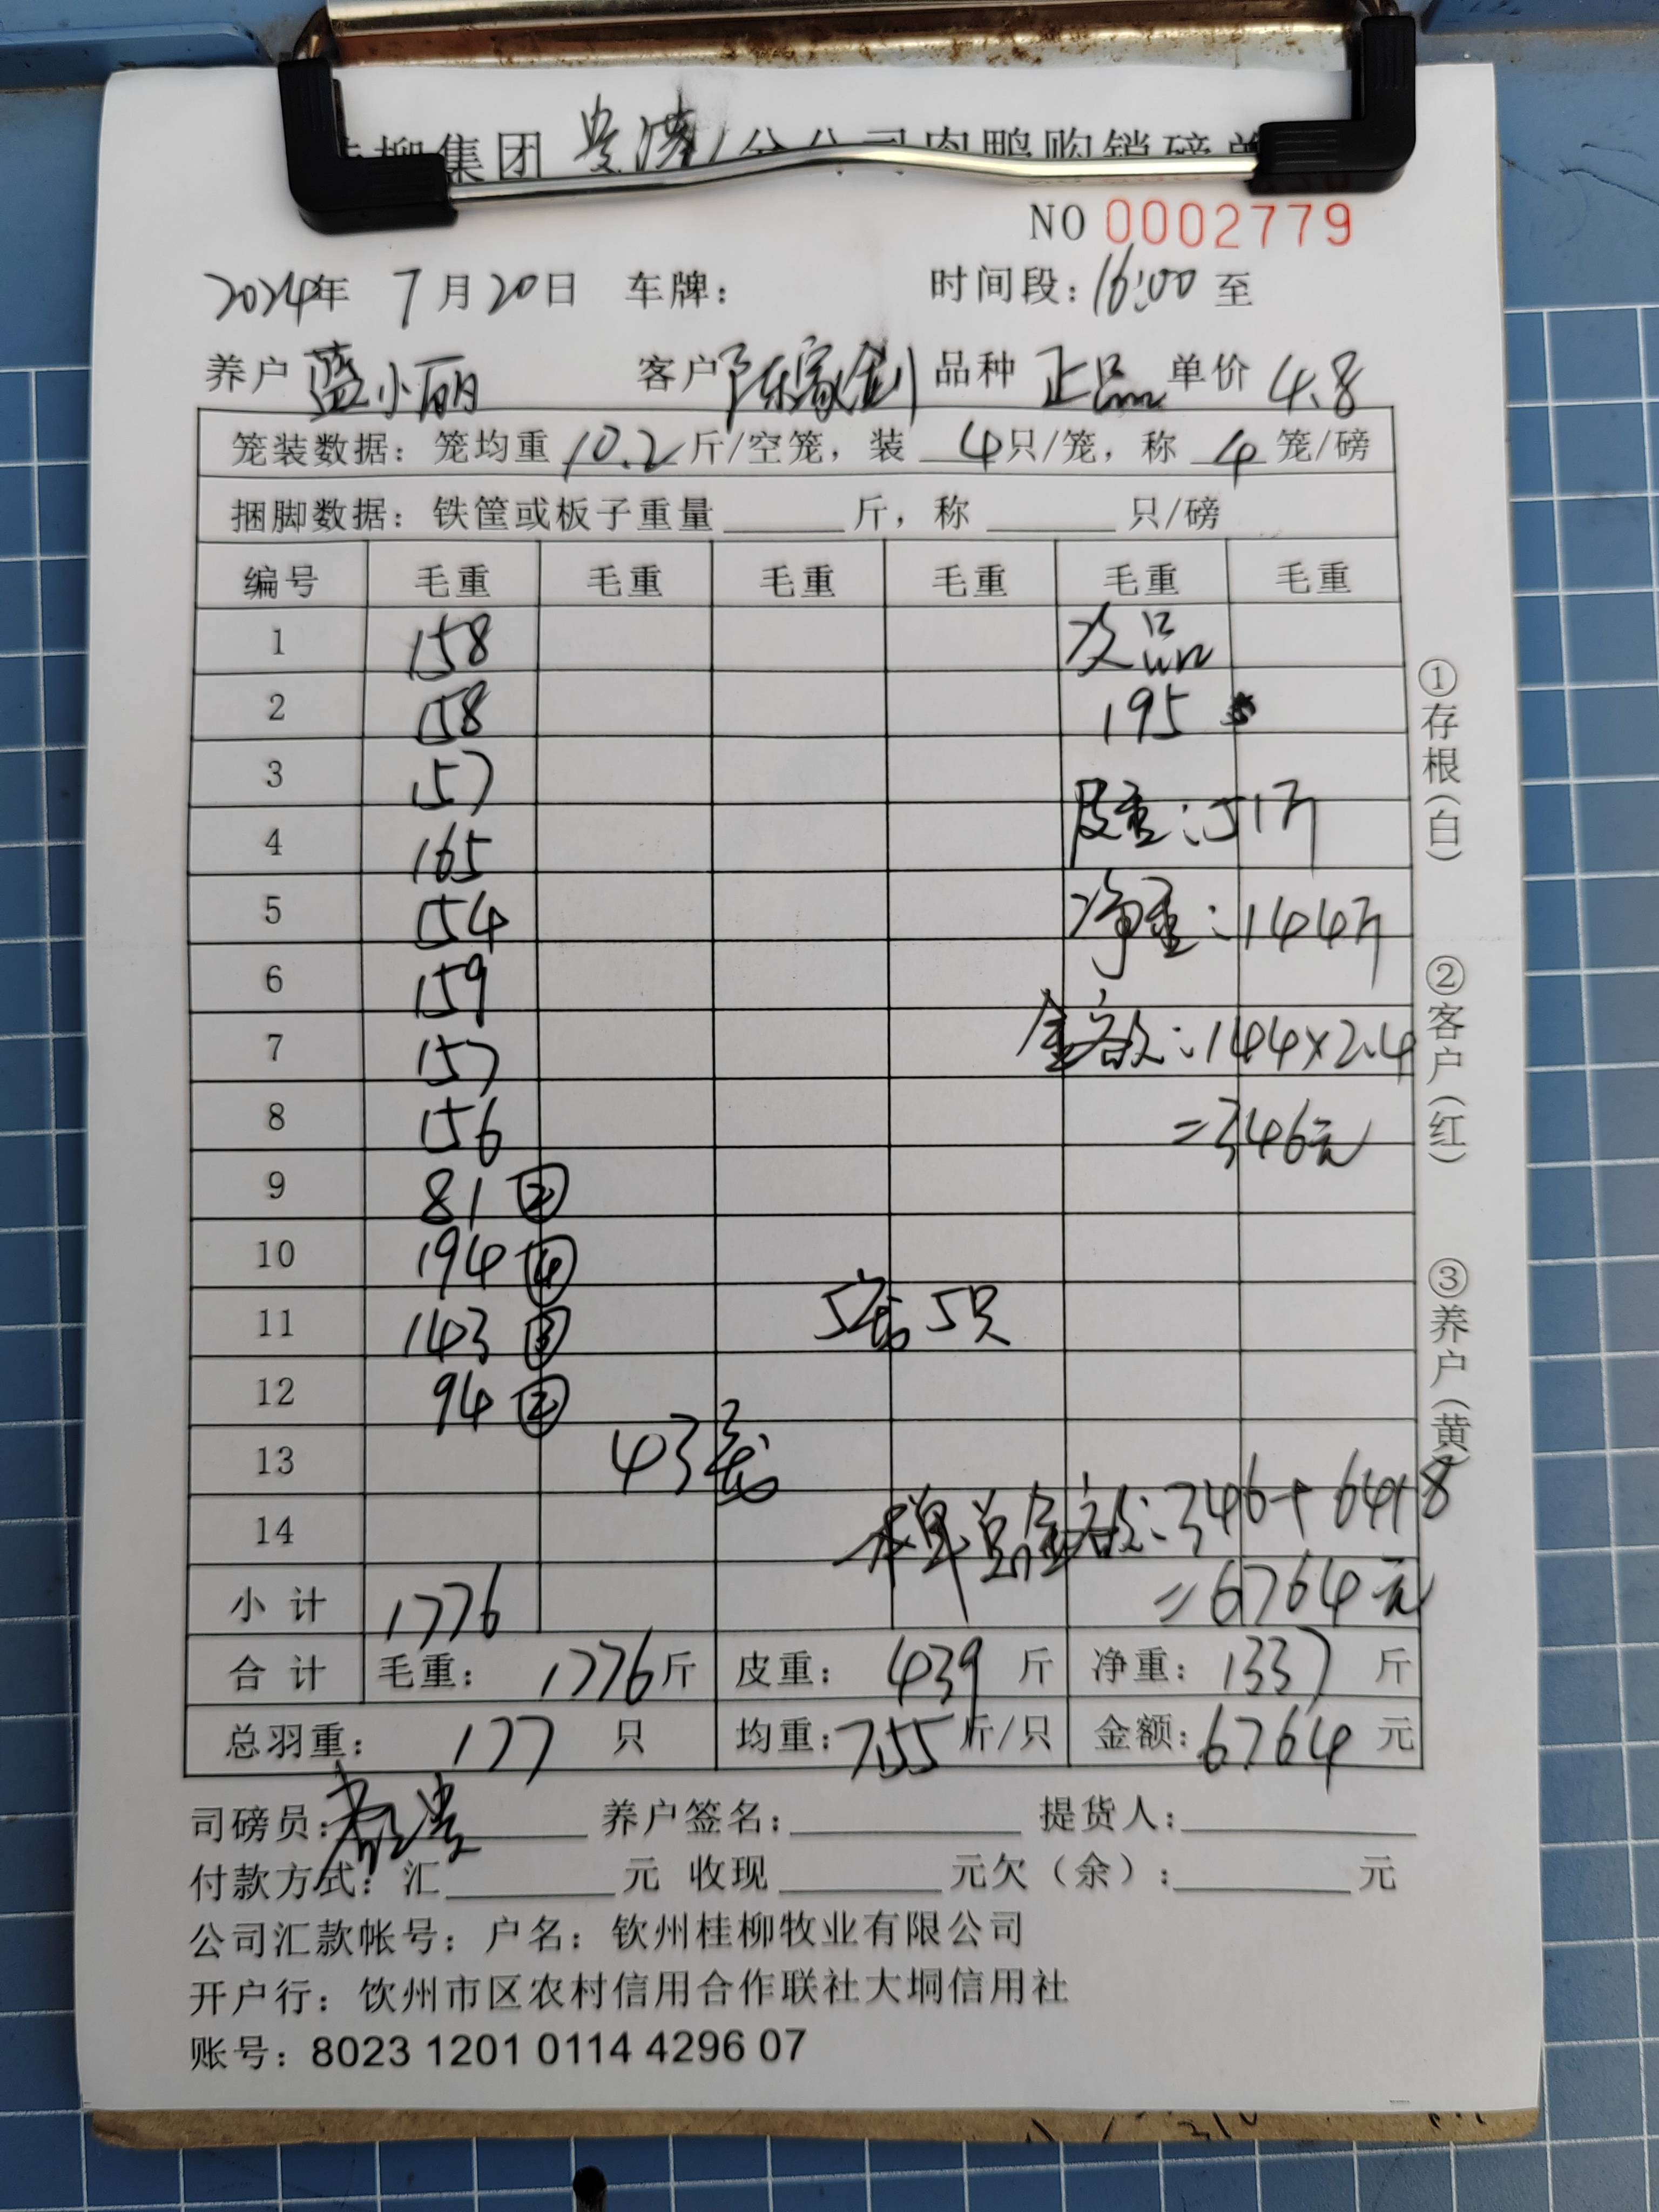 柳集团 贵港 分公司肉鸭购销磅单
NO 0002779
2024年 7月20日 车牌： 时间段：16:00 至
养户 蓝小丽 客户 陈家剑 品种 正品 单价 4.8
笼装数据：笼均重 10.2 斤/空笼，装 4 只/笼，称 4 笼/磅
捆脚数据：铁筐或板子重量 斤，称 只/磅
编号 毛重 毛重 毛重 毛重 毛重 毛重
1 158 次品
2 158 195
3 157
4 165 皮重：51斤
5 154 净重：144斤
6 159
7 157 金额：144×2.4
8 156 =346元
9 81 ②
10 194 ④
11 143 ③ 5笼 5只
12 94 ②
13 43笼
14 本单总金额：346+6418
小计 1776 =6764元
合计 毛重： 1776斤 皮重： 439 斤 净重： 1337 斤
总羽重： 177 只 均重：7.55 斤/只 金额：6764 元
司磅员： 养户签名： 提货人：
付款方式：汇 元 收现 元欠（余）： 元
公司汇款帐号：户名：钦州桂柳牧业有限公司
开户行：饮州市区农村信用合作联社大垌信用社
账号：8023 1201 0114 4296 07
①存根（白）
②客户（红）
③养户（黄）